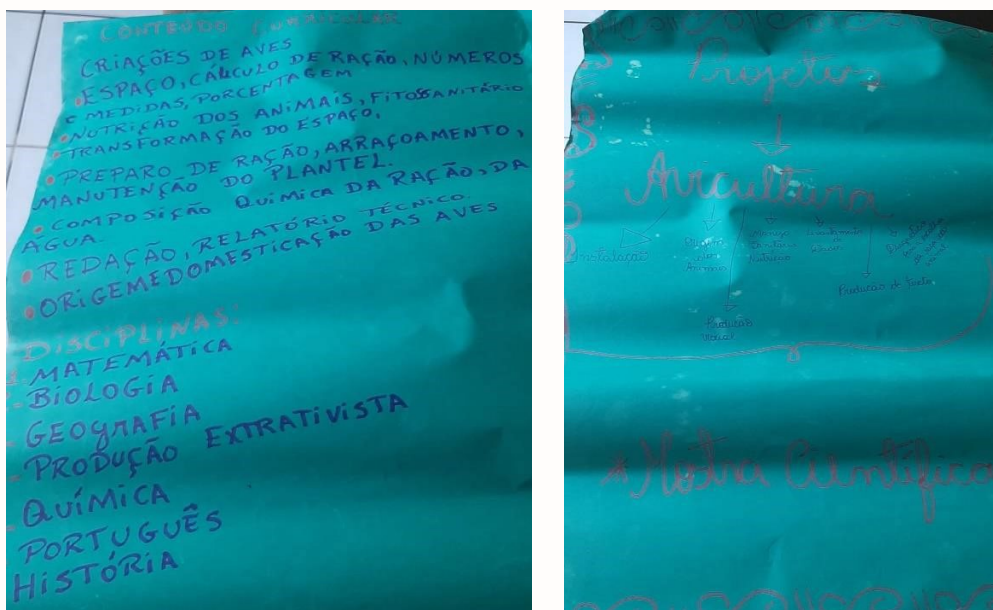 CONTEÚDO CURRICULAR
CRIAÇÕES DE AVES
•ESPAÇO, CÁLCULO DE RAÇÃO, NÚMEROS
E MEDIDAS, PORCENTAGEM
•NUTRIÇÃO DOS ANIMAIS, FITOSSANITÁRIO
•TRANSFORMAÇÃO DO ESPAÇO,
•PREPARO DE RAÇÃO, ARRAÇOAMENTO,
MANUTENÇÃO DO PLANTEL.
•COMPOSIÇÃO QUÍMICA DA RAÇÃO, DA
ÁGUA.
•REDAÇÃO, RELATÓRIO TÉCNICO.
•ORIGEM E DOMESTICAÇÃO DAS AVES
DISCIPLINAS:
- MATEMÁTICA
- BIOLOGIA
- GEOGRAFIA
- PRODUÇÃO EXTRATIVISTA
- QUÍMICA
PORTUGUÊS
HISTÓRIA
Projetos
Avicultura
Instalação
com
Animais
Manejo
Sanitário
Nutrição
de
Ração
Produção de
Produção
* Mostra Científica